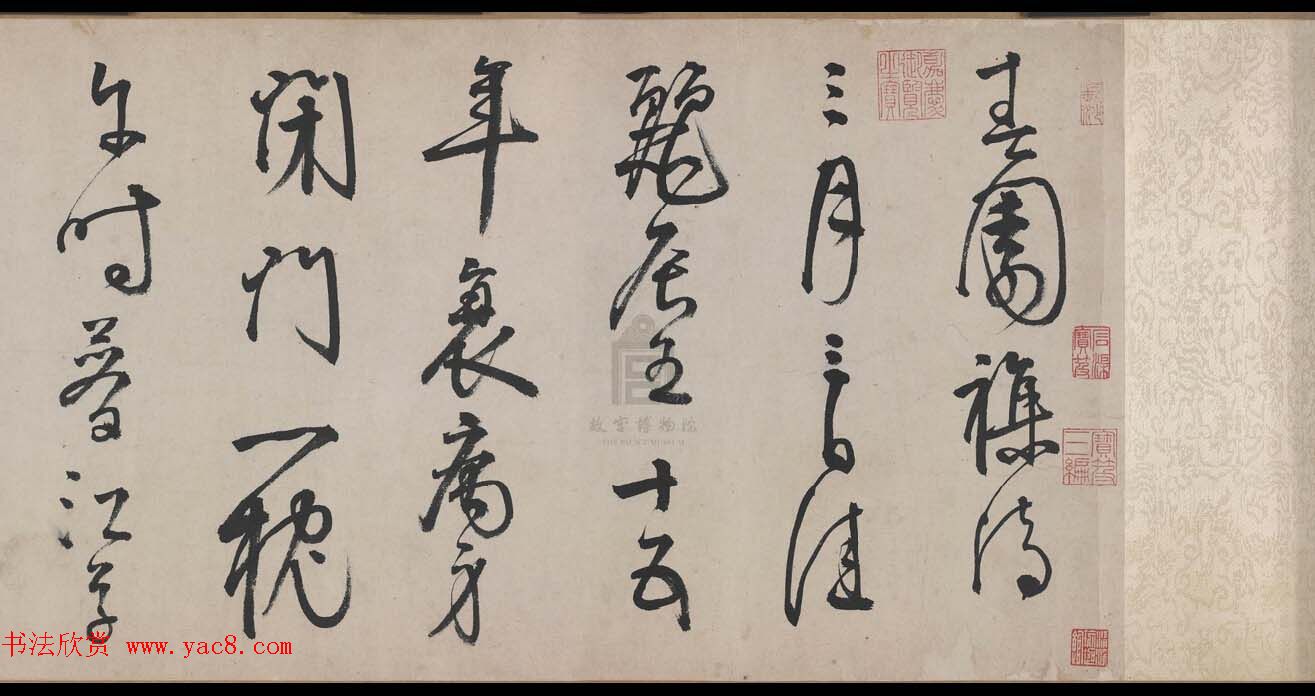 春園襍詩
三月三日佳
麗辰五十五
年衰病身
閑門一枕
午時夢江草
嘉慶御覽之寶
石渠寶笈
寶笈三編
故宫博物院
THE PALACE MUSEUM
书法欣赏 www.yac8.com